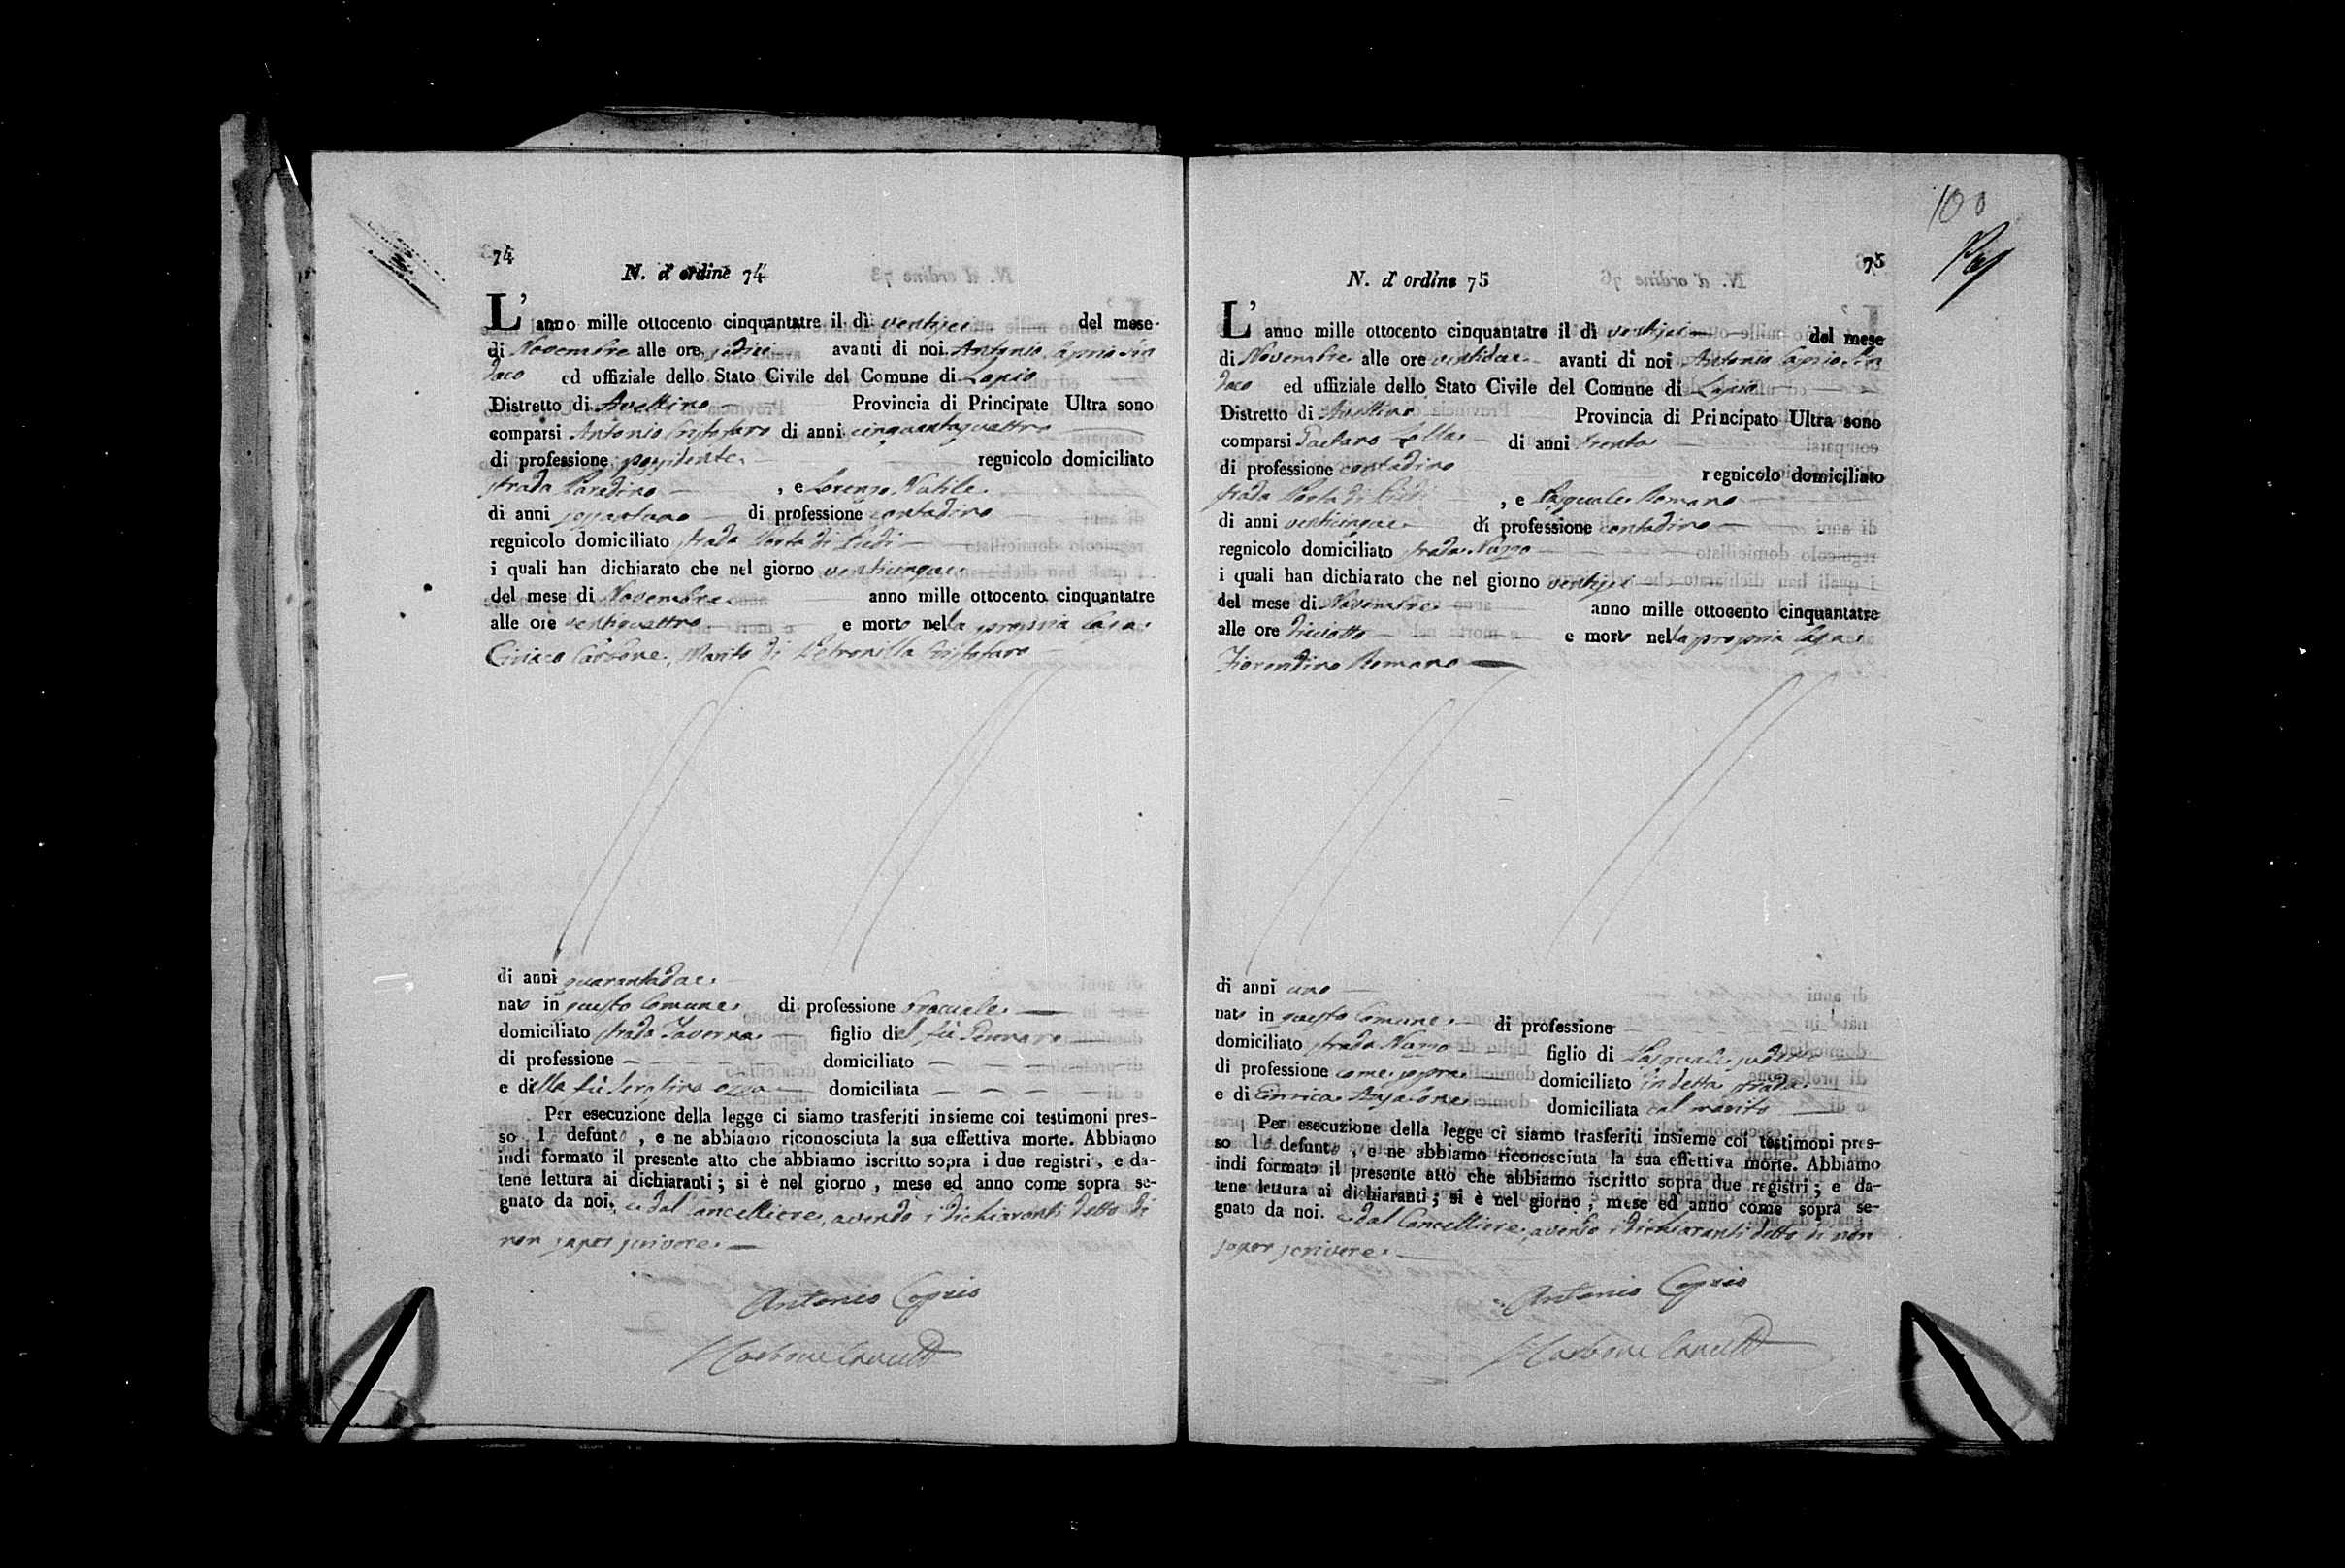 74
N. d'ordine 74
L'anno mille ottocento cinquantatre il dì ventisei del mese
di Novembre alle ore sedici avanti di noi Antonio Caprio Sin
daco ed uffiziale dello Stato Civile del Comune di Lapio
Distretto di Avellino Provincia di Principate Ultra sono
comparsi Antonio Cristofaro di anni cinquantaquattro
di professione possidente regnicolo domiciliato
strada Paradino , e Lorenzo Natile
di anni sessantuno di professione contadino
regnicolo domiciliato strada Porta di Piedi
i quali han dichiarato che nel giorno venticinque
del mese di Novembre anno mille ottocento cinquantatre
alle ore ventiquattro e morto nella propria Casa
Ciriaco Carbone, Marito di Petronilla Cristofaro
di anni quarantadue
nato in questo Comune di professione
domiciliato strada Taverna figlio del fù Gennaro
di professione — — — — domiciliato — — —
e della fù Serafina domiciliata — — — —
Per esecuzione della legge ci siamo trasferiti insieme coi testimoni pres-
so l defunto , e ne abbiamo riconosciuta la sua effettiva morte. Abbiamo
indi formato il presente atto che abbiamo iscritto sopra i due registri, e da-
tene lettura ai dichiaranti; si è nel giorno, mese ed anno come sopra se-
gnato da noi, e dal Cancelliere, avendo i dichiaranti detto di
non saper scrivere. —
Antonio Caprio
Carbone Cancell
100
75
N. d'ordine 75
L'anno mille ottocento cinquantatre il dì ventisei del mese
di Novembre alle ore ventidue avanti di noi Antonio Caprio Sin
daco ed uffiziale dello Stato Civile del Comune di Lapio
Distretto di Avellino Provincia di Principato Ultra sono
comparsi Gaetano Zolla di anni trenta
di professione contadino regnicolo domiciliato
strada Porta di Piedi , e Pasquale Romano
di anni venticinque di professione contadino
regnicolo domiciliato strada Nuzzo
i quali han dichiarato che nel giorno ventisei
del mese di Novembre anno mille ottocento cinquantatre
alle ore diciotto e morto nella propria Casa
Fiorentino Romano
di anni uno
nato in questo Comune di professione
domiciliato strada Nuzzo figlio di Pasquale sudetto
di professione come sopra domiciliato in detta strada
e di Enrica Anzalone domiciliata col marito
Per esecuzione della legge ci siamo trasferiti insieme coi testimoni pres-
so lo defunto , e ne abbiamo riconosciuta la sua effettiva morte. Abbiamo
indi formato il presente atto che abbiamo iscritto sopra due registri; e da-
tene lettura ai dichiaranti; si è nel giorno, mese ed anno come sopra se-
gnato da noi. e dal Cancelliere, avendo i dichiaranti detto di non
saper scrivere. —
Antonio Caprio
Carbone Cancell